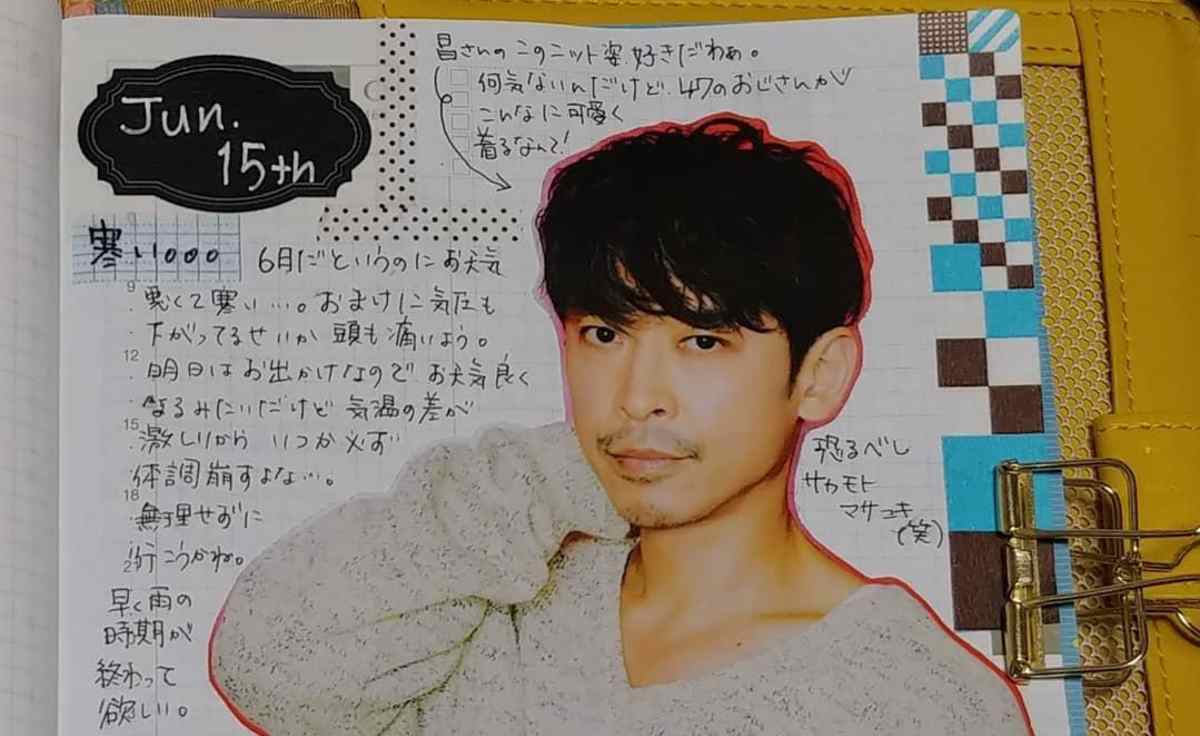 Jun.
15th
昌さんのこのニット姿、好きだわぁ。
何気ないんだけど、47のおじさんが
こんなに可愛く
着るなんて!
寒い。。。
6月だというのにお天気
悪くて寒い…。おまけに気圧も
下がってるせいか 頭も痛いよう。
明日はお出かけなので お天気良く
なるみたいだけど 気温の差が
激しいから いつか必ず
体調崩すよな…。
無理せずに
行こうかね。
早く雨の
時期が
終わって
欲しい。
恐るべし
サカモト
マサユキ
(笑)
9
12
15
18
21